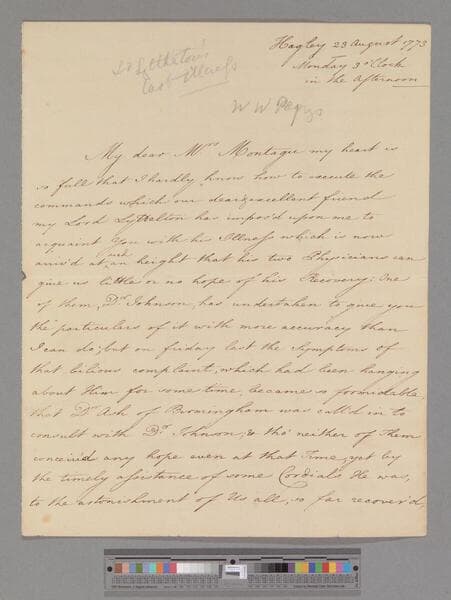 Hagley 23 August 1773
Monday 3 o'Clock
in the Afternoon
Ld Lyttelton's
Last illness
W W Pepys
My dear Mrs Montagu my heart is
so full that I hardly know how to execute the
commands which our dear, excellent friend
my Lord Lyttelton has impos'd upon me to
acquaint You with his Illness which is now
arriv'd at such an height that his two Physicians can
give us little or no hope of his Recovery: One
of them, Dr Johnson, has undertaken to give you
the particulars of it with more accuracy than
I can do; but on friday last the Symptoms of
that bilious complaint, which had been hanging
about Him for some time, became so formidable,
that Dr Ash of Birmingham was call'd in to
consult with Dr Johnson, & tho' neither of Them
conceiv'd any hope even at that Time, yet by
the timely assistance of some Cordials He was,
to the astonishment of Us all, so far recover'd,